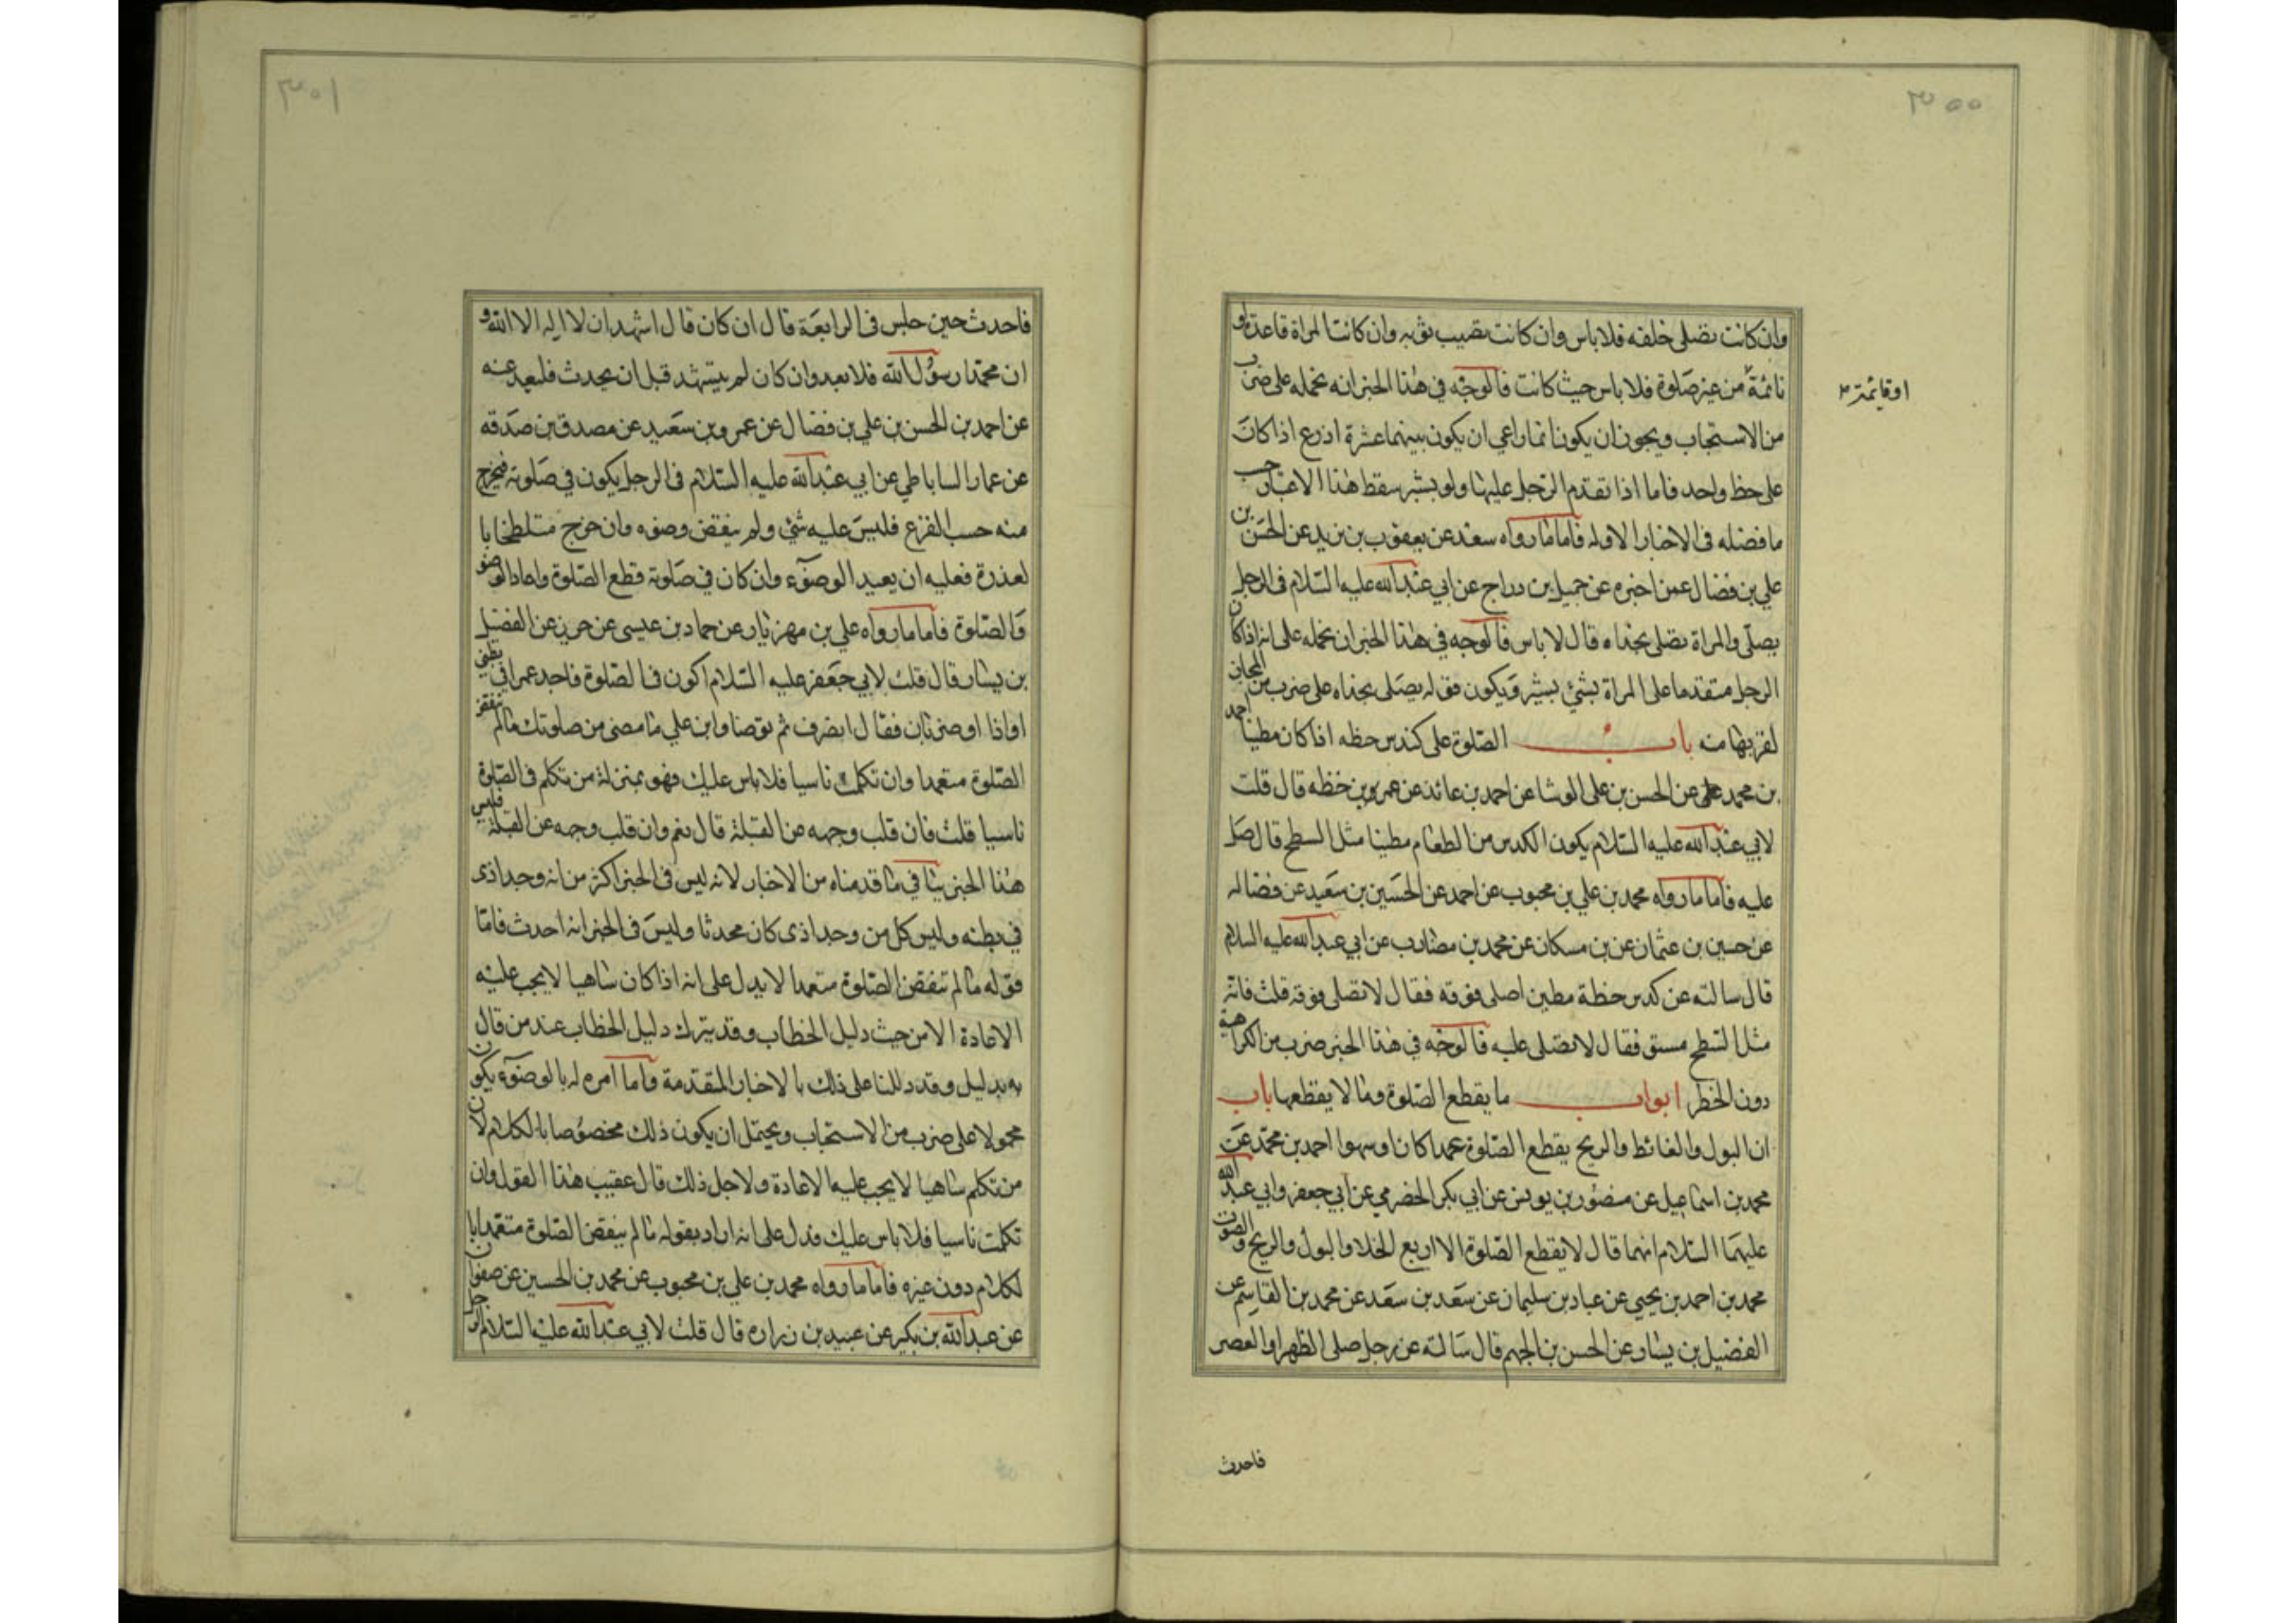 ٣٠٠
وان كانت تصلى خلفه فلا باس وان كانت تصيب ثوبه وان كانت المراة قاعدة او
نائمة من غير صلوة فلا باس حيث كانت فالوجه في هذا الخبر انه نحمله على ضرب
اوقائمة
من الاستحباب ويجوز ان يكون انما راعى ان يكون بينهما عشرة اذرع اذا كانت
على خط واحد فاما اذا تقدم الرجل عليها ولو بشبر سقط هذا الاعتبار حسب
ما فصله فى الاخبار الاوله فاما ما رواه سعد عن يعقوب بن يزيد عن الحسن بن
علي بن فضال عمن اخبره عن جميل بن دراج عن ابي عبد الله عليه السلام فى الرجل
يصلى والمراة تصلى بحذاه قال لا باس فالوجه في هذا الخبر ان نحمله على انه اذا كان
الرجل متقدما على المراة بشئ بشبر ويكون قوله يصلى بحذاه على ضرب من المجاز
لقربها منه باب الصلوة على كدس حظه اذا كان مطينا احمد
بن محمد عن الحسن بن على الوشا عن احمد بن عائذ عن عمر بن حنظه قال قلت
لابي عبد الله عليه السلام يكون الكدس من الطعام مطينا مثل السطح قال صل
عليه فاما ما رواه محمد بن علي بن محبوب عن احمد عن الحسين بن سعيد عن فضاله
عن حسين بن عثمان عن بن مسكان عن محمد بن مضارب عن ابي عبد الله عليه السلام
قال سالته عن كدس حنطة مطين اصلى فوقه فقال لا تصلى فوقه قلت فانه
مثل السطح مستو فقال لا تصلى عليه فالوجه في هذا الخبر ضرب من الكراهية
دون الحظر ابواب ما يقطع الصلوة وما لا يقطعها باب
ان البول والغائط والريح يقطع الصلوة عمدا كان او سهوا احمد بن محمد عن
محمد بن اسماعيل عن منصور بن يونس عن ابي بكر الحضرمي عن ابي جعفر وابي عبد الله
عليهما السلام انهما قال لا يقطع الصلوة الا اربع الخلا والبول والريح والصوت
محمد بن احمد بن يحيى عن عباد بن سليمان عن سعد بن سعد عن محمد بن القاسم عن
الفضيل بن يسار عن الحسن بن الجهم قال سالته عن رجل صلى الظهر او العصر
فاحدث
٣٠١
فاحدث حين جلس فى الرابعة قال ان كان قال اشهد ان لا اله الا الله و
ان محمدا رسول الله فلا يعد وان كان لم يتشهد قبل ان يحدث فليعد عنه
عن احمد بن الحسن بن علي بن فضال عن عمرو بن سعيد عن مصدق بن صدقه
عن عمار الساباطي عن ابي عبد الله عليه السلام فى الرجل يكون في صلوته فيخرج
منه حب القرع فليس عليه شئ ولم ينقض وضوه وان خرج متلطخا با
لعذرة فعليه ان يعيد الوضوء وان كان في صلوته قطع الصلوة واعاد الوضو
والصلوة فاما ما رواه علي بن مهزيار عن حماد بن عيسى عن حريز عن الفضيل
بن يسار قال قلت لابي جعفر عليه السلام اكون فى الصلوة فاجد غمزا في بطنى
او اذا او ضربانا فقال انصرف ثم توضا وابن علي ما مضى من صلوتك ما لم تنقض
الصلوة متعمدا وان تكلمت ناسيا فلا باس عليك فهو بمنزلة من تكلم فى الصلوة
ناسيا قلت فان قلب وجهه عن القبلة قال نعم وان قلب وجهه عن القبلة فليس
هذا الخبر ينافي ما قدمناه من الاخبار لانه ليس فى الخبر اكثر من انه وجد اذى
في بطنه وليس كل من وجد اذى كان محدثا وليس فى الخبر انه احدث فاما
قوله ما لم تنقض الصلوة متعمدا لا يدل على انه اذا كان ساهيا لا يجب عليه
الاعادة الا من حيث دليل الخطاب وقد يترك دليل الخطاب عند من قال
به بدليل وقد دللنا على ذلك با لاخبار المتقدمة واما امره له بالوضوء يكون
محمولا على ضرب من الاستحباب ويحتمل ان يكون ذلك مخصوصا بالكلام لان
من تكلم ساهيا لا يجب عليه الاعادة ولاجل ذلك قال عقيب هذا القول وان
تكلمت ناسيا فلا باس عليك فدل على انه اراد بقوله ما لم ينقض الصلوة متعمدا با
لكلام دون غيره فاما ما رواه محمد بن علي بن محبوب عن محمد بن الحسين عن صفوان
عن عبد الله بن بكير عن عبيد بن زراره قال قلت لابي عبد الله عليه السلام الرجل